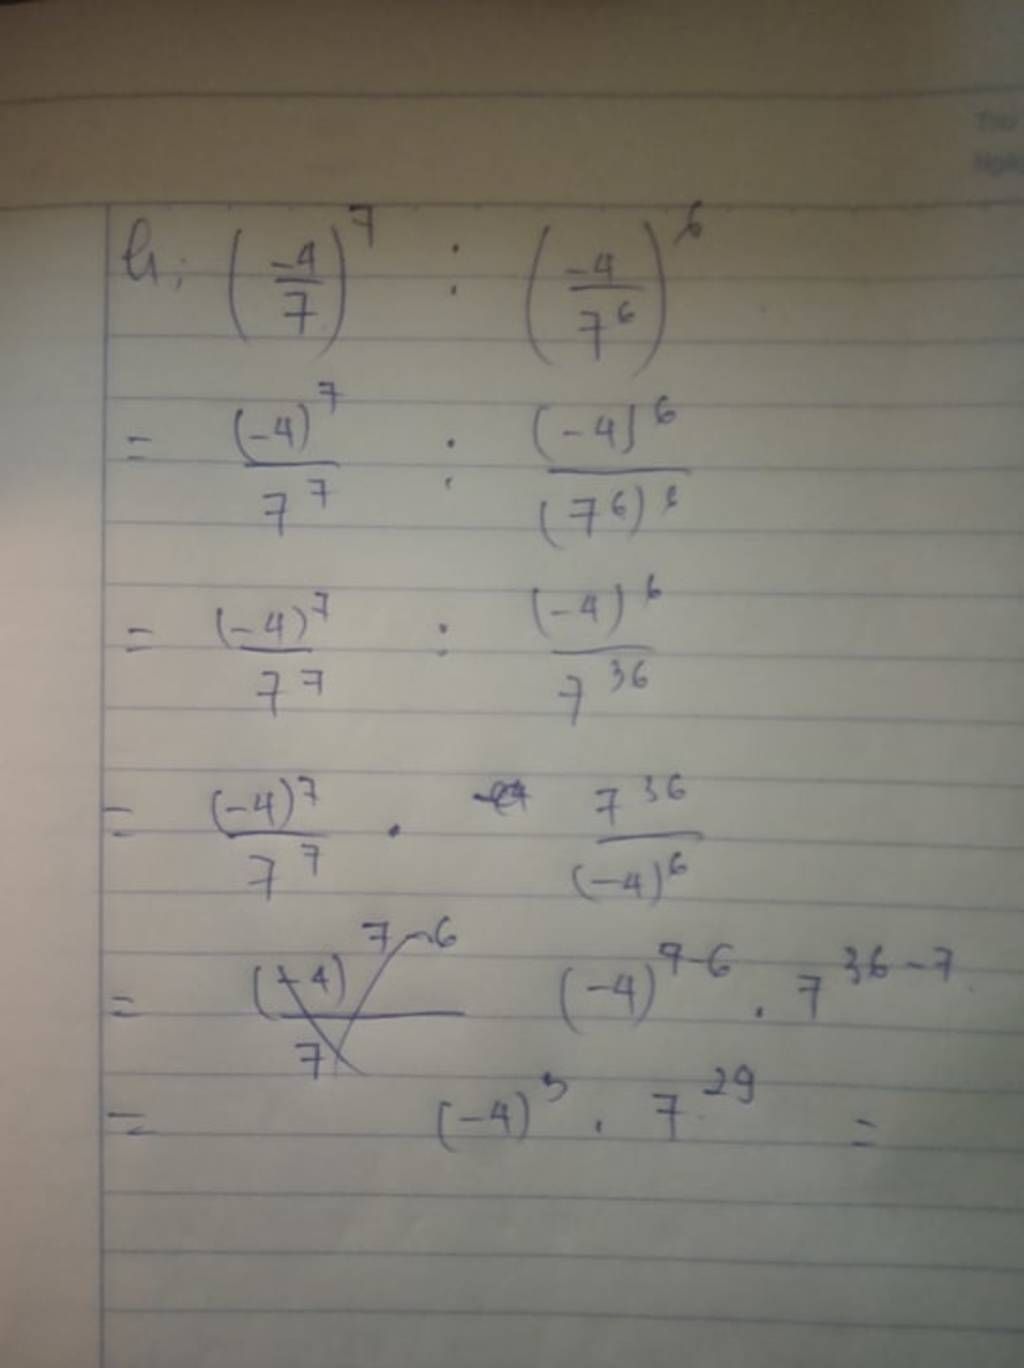 h, (-4/7)^7 : (-4/7^6)^6
= (-4)^7/7^7 : (-4)^6/(7^6)^6
= (-4)^7/7^7 : (-4)^6/7^36
= (-4)^7/7^7 . 7^36/(-4)^6
= (-4)^7-6/7 (-4)^9-6 . 7^36-7
= (-4)^3 . 7^29 =